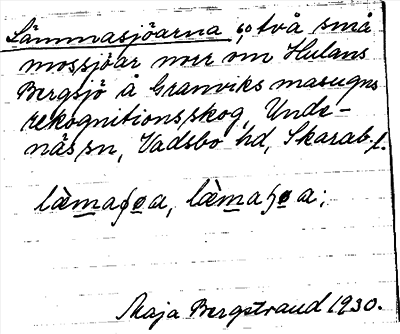 Lämmasjöarna, 60 två små
mossjöar norr om Hulans
Bergsjö å Granviks masugns
rekognitionsskog, Unde-
näs sn, Vadsbo hd, Skarab. l.
là̀maʃøa, là̀maɧøa;
Maja Bergstrand 1930.